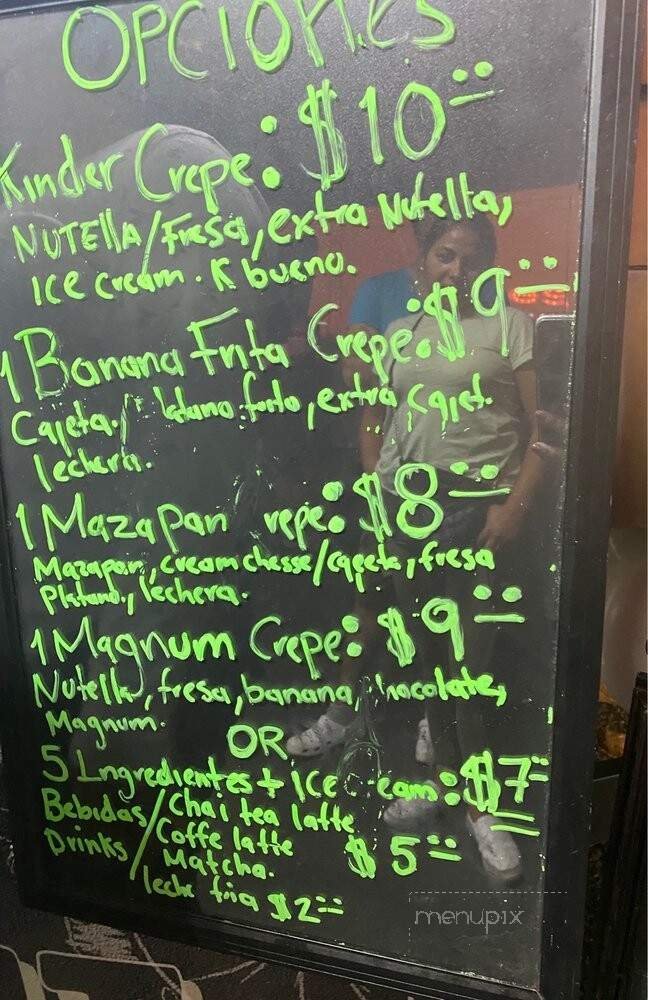 OPCIONES
Kinder Crepe: $10
NUTELLA/Fresa, extra Nutella,
Ice cream. K bueno.
1 Banana Frita Crepe: $9
Cajeta./ frito, extra cajet.
lechera.
1 Mazapan repe: $8
Mazapan, cream chesse/cajeta, fresa
Platano, lechera.
1 Magnum Crepe: $9
Nutella, fresa, banana, hocolate,
Magnum.
OR
5 Ingredientes + ICE C eam: $7
Bebidas/ Chai tea latte
Drinks/ Coffe latte $5
Matcha.
leche fria $2
menupix